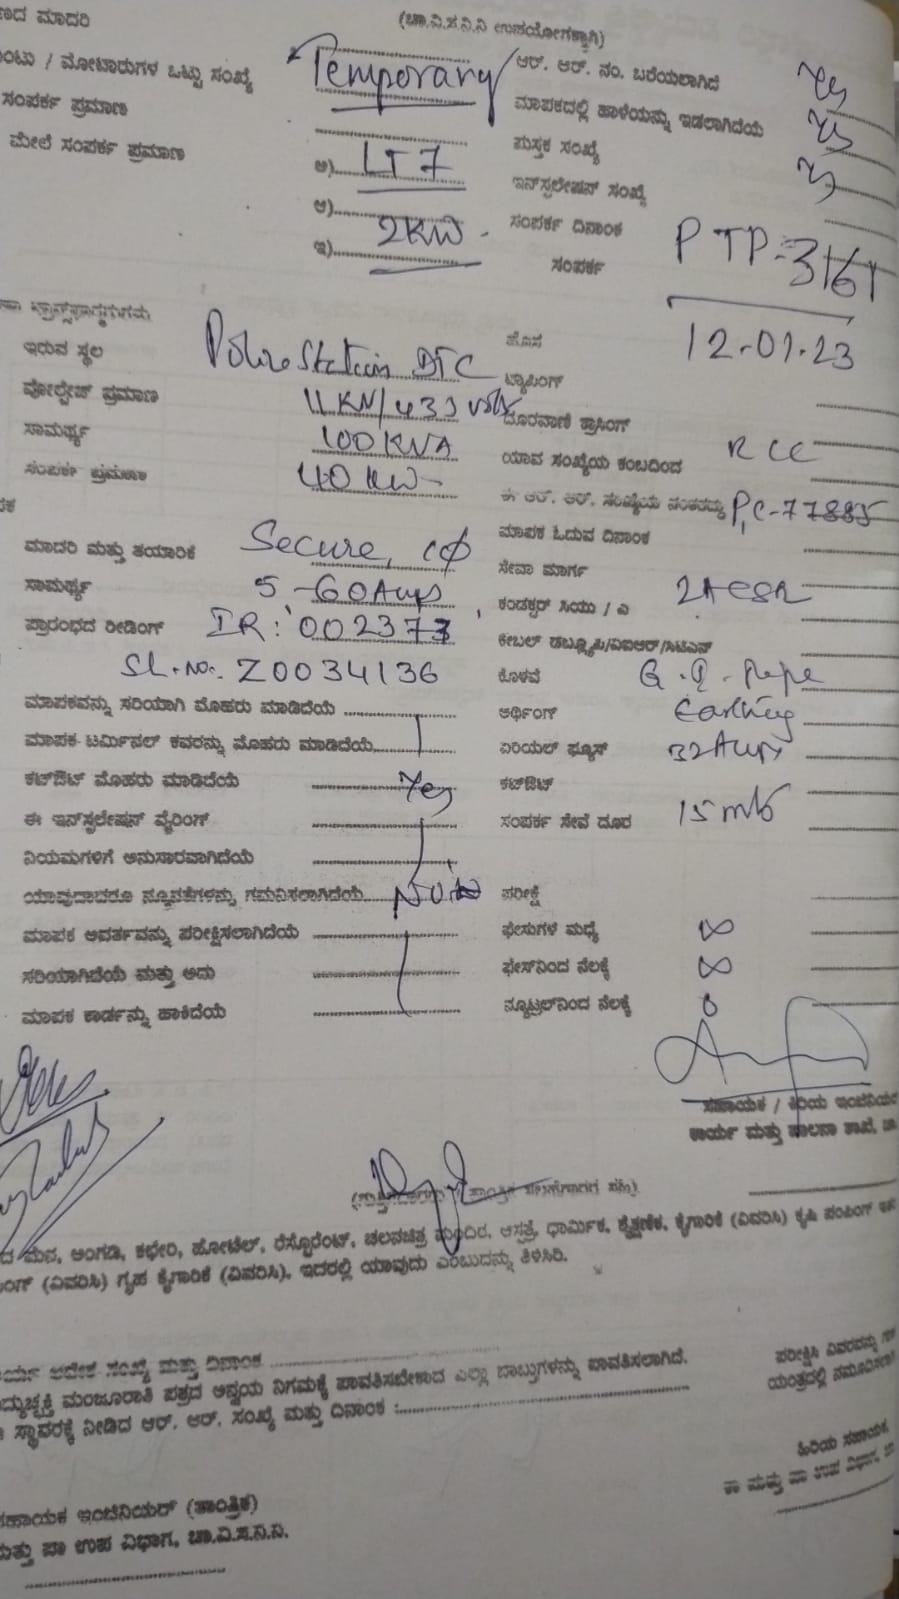 ಮಾದರಿ
(ಚಾ.ವಿ.ಸ.ನಿ.ನಿ ಉಪಯೋಗಕ್ಕಾಗಿ)
/ ಮೋಟಾರುಗಳ ಒಟ್ಟು ಸಂಖ್ಯೆ Temporary ಆರ್. ಆರ್. ನಂ. ಬರೆಯಲಾಗಿದೆ Yes
ಸಂಪರ್ಕ ಪ್ರಮಾಣ ಮಾಪಕದಲ್ಲಿ ಹಾಳೆಯನ್ನು ಇಡಲಾಗಿದೆಯೆ Yes
ಮೇಲೆ ಸಂಪರ್ಕ ಪ್ರಮಾಣ ಅ) LT7 ಪುಸ್ತಕ ಸಂಖ್ಯೆ
ಆ) ಇನ್‌ಸ್ಟಲೇಷನ್ ಸಂಖ್ಯೆ
ಇ) 2KW ಸಂಪರ್ಕ ದಿನಾಂಕ PTP-3161
ಸಂಪರ್ಕ
12.01.23
ಇರುವ ಸ್ಥಳ Police Station DTC ಟ್ಯಾಪಿಂಗ್
ವೋಲ್ಟೇಜ್ ಪ್ರಮಾಣ 11KV/433 volts ದೂರವಾಣಿ ಕ್ರಾಸಿಂಗ್
ಸಾಮರ್ಥ್ಯ 100KVA ಯಾವ ಸಂಖ್ಯೆಯ ಕಂಬದಿಂದ RCC
ಸಂಪರ್ಕ ಪ್ರಮಾಣ 40KW ಈ ಆರ್. ಆರ್. ಸಂಖ್ಯೆಯ ನಂತರದ್ದು PC-77885
ಮಾದರಿ ಮತ್ತು ತಯಾರಿಕೆ Secure, 1Φ ಮಾಪಕ ಓದುವ ದಿನಾಂಕ
ಸಾಮರ್ಥ್ಯ 5-60Amps ಸೇವಾ ಮಾರ್ಗ
ಪ್ರಾರಂಭದ ರೀಡಿಂಗ್ IR: 002373 ಕಂಡಕ್ಟರ್ ಸಿಯು / ಎ 2ACSR
Sl.no: Z0034136 ಕೇಬಲ್ ಡಬ್ಲ್ಯೂಪಿ/ವಿಐಆರ್/ಸಿಟಿಎಸ್
ಕೊಳವೆ G.I. Pipe
ಮಾಪಕವನ್ನು ಸರಿಯಾಗಿ ಮೊಹರು ಮಾಡಿದೆಯೆ ಅರ್ಥಿಂಗ್ Earthing
ಮಾಪಕ ಟರ್ಮಿನಲ್ ಕವರನ್ನು ಮೊಹರು ಮಾಡಿದೆಯೆ ಏರಿಯಲ್ ಫ್ಯೂಸ್ 32Amps
ಕಟ್‌ಔಟ್ ಮೊಹರು ಮಾಡಿದೆಯೆ Yes ಕಟ್‌ಔಟ್
ಈ ಇನ್‌ಸ್ಟಲೇಷನ್ ವೈರಿಂಗ್ ಸಂಪರ್ಕ ಸೇವೆ ದೂರ 15mts
ನಿಯಮಗಳಿಗೆ ಅನುಸಾರವಾಗಿದೆಯೆ
ಯಾವುದಾದರೂ ನ್ಯೂನತೆಗಳನ್ನು ಗಮನಿಸಲಾಗಿದೆಯೆ ಪರೀಕ್ಷೆ
ಮಾಪಕ ಆವರ್ತವನ್ನು ಪರೀಕ್ಷಿಸಲಾಗಿದೆಯೆ ಫೇಸುಗಳ ಮಧ್ಯೆ ∞
ಸರಿಯಾಗಿದೆಯೆ ಮತ್ತು ಅದು ಫೇಸ್‌ನಿಂದ ನೆಲಕ್ಕೆ ∞
ಮಾಪಕ ಕಾರ್ಡನ್ನು ಹಾಕಿದೆಯೆ ನ್ಯೂಟ್ರಲ್‌ನಿಂದ ನೆಲಕ್ಕೆ 0
ಸಹಾಯಕ / ಕಿರಿಯ ಇಂಜಿನಿಯರ್
ಕಾರ್ಯ ಮತ್ತು ಪಾಲನಾ ಶಾಖೆ,
ಮನೆ, ಅಂಗಡಿ, ಕಛೇರಿ, ಹೋಟೆಲ್, ರೆಸ್ಟೋರೆಂಟ್, ಚಲನಚಿತ್ರ ಮಂದಿರ, ಆಸ್ಪತ್ರೆ, ಧಾರ್ಮಿಕ, ಶೈಕ್ಷಣಿಕ, ಕೈಗಾರಿಕೆ (ವಿವರಿಸಿ) ಕೃಷಿ ಪಂಪಿಂಗ್
(ವಿವರಿಸಿ) ಗೃಹ ಕೈಗಾರಿಕೆ (ವಿವರಿಸಿ), ಇದರಲ್ಲಿ ಯಾವುದು ಎಂಬುದನ್ನು ತಿಳಿಸಿರಿ.
ಆದೇಶ ಸಂಖ್ಯೆ ಮತ್ತು ದಿನಾಂಕ
ಮಂಜೂರಾತಿ ಪತ್ರದ ಅನ್ವಯ ನಿಗಮಕ್ಕೆ ಪಾವತಿಸಬೇಕಾದ ಎಲ್ಲಾ ಬಾಬ್ತುಗಳನ್ನು ಪಾವತಿಸಲಾಗಿದೆ. ಪರೀಕ್ಷಿಸಿ ವಿವರವನ್ನು
ಸ್ಥಾವರಕ್ಕೆ ನೀಡಿದ ಆರ್. ಆರ್. ಸಂಖ್ಯೆ ಮತ್ತು ದಿನಾಂಕ :
ಹಿರಿಯ ಸಹಾಯಕ,
ಸಹಾಯಕ ಇಂಜಿನಿಯರ್ (ತಾಂತ್ರಿಕ)
ಮತ್ತು ಪಾ ಉಪ ವಿಭಾಗ, ಚಾ.ವಿ.ಸ.ನಿ.ನಿ.